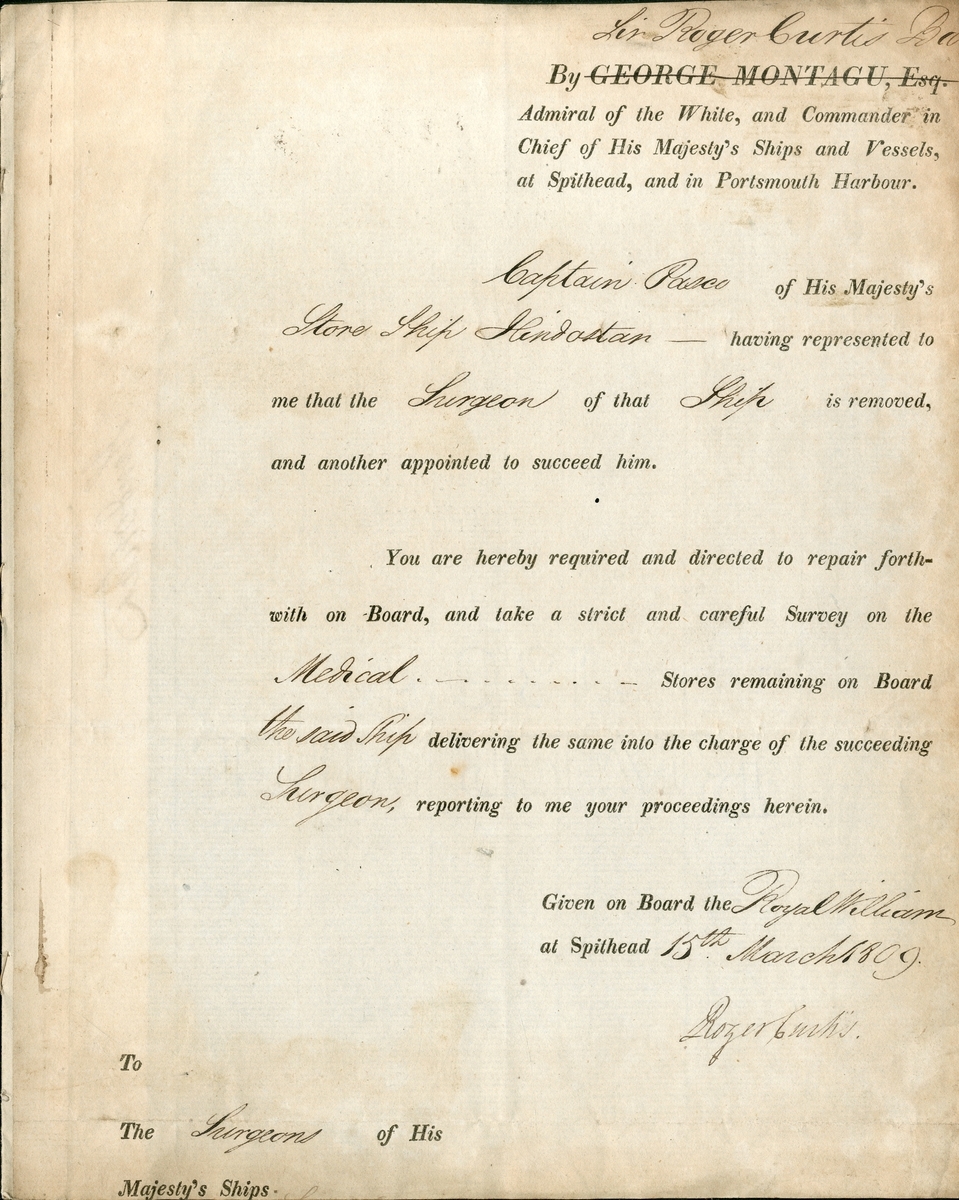 Sir Roger Curtis
By GEORGE MONTAGU, Esq.
Admiral of the White, and Commander in
Chief of His Majesty's Ships and Vessels,
at Spithead, and in Portsmouth Harbour.
Captain Pasco of His Majesty's
Store Ship Hindostan — having represented to
me that the Surgeon of that Ship is removed,
and another appointed to succeed him.
You are hereby required and directed to repair forth-
with on Board, and take a strict and careful Survey on the
Medical Stores remaining on Board
the said Ship delivering the same into the charge of the succeeding
Surgeon, reporting to me your proceedings herein.
Given on Board the Royal William
at Spithead 15th March 1809.
Roger Curtis.
To
The Surgeons of His
Majesty's Ships